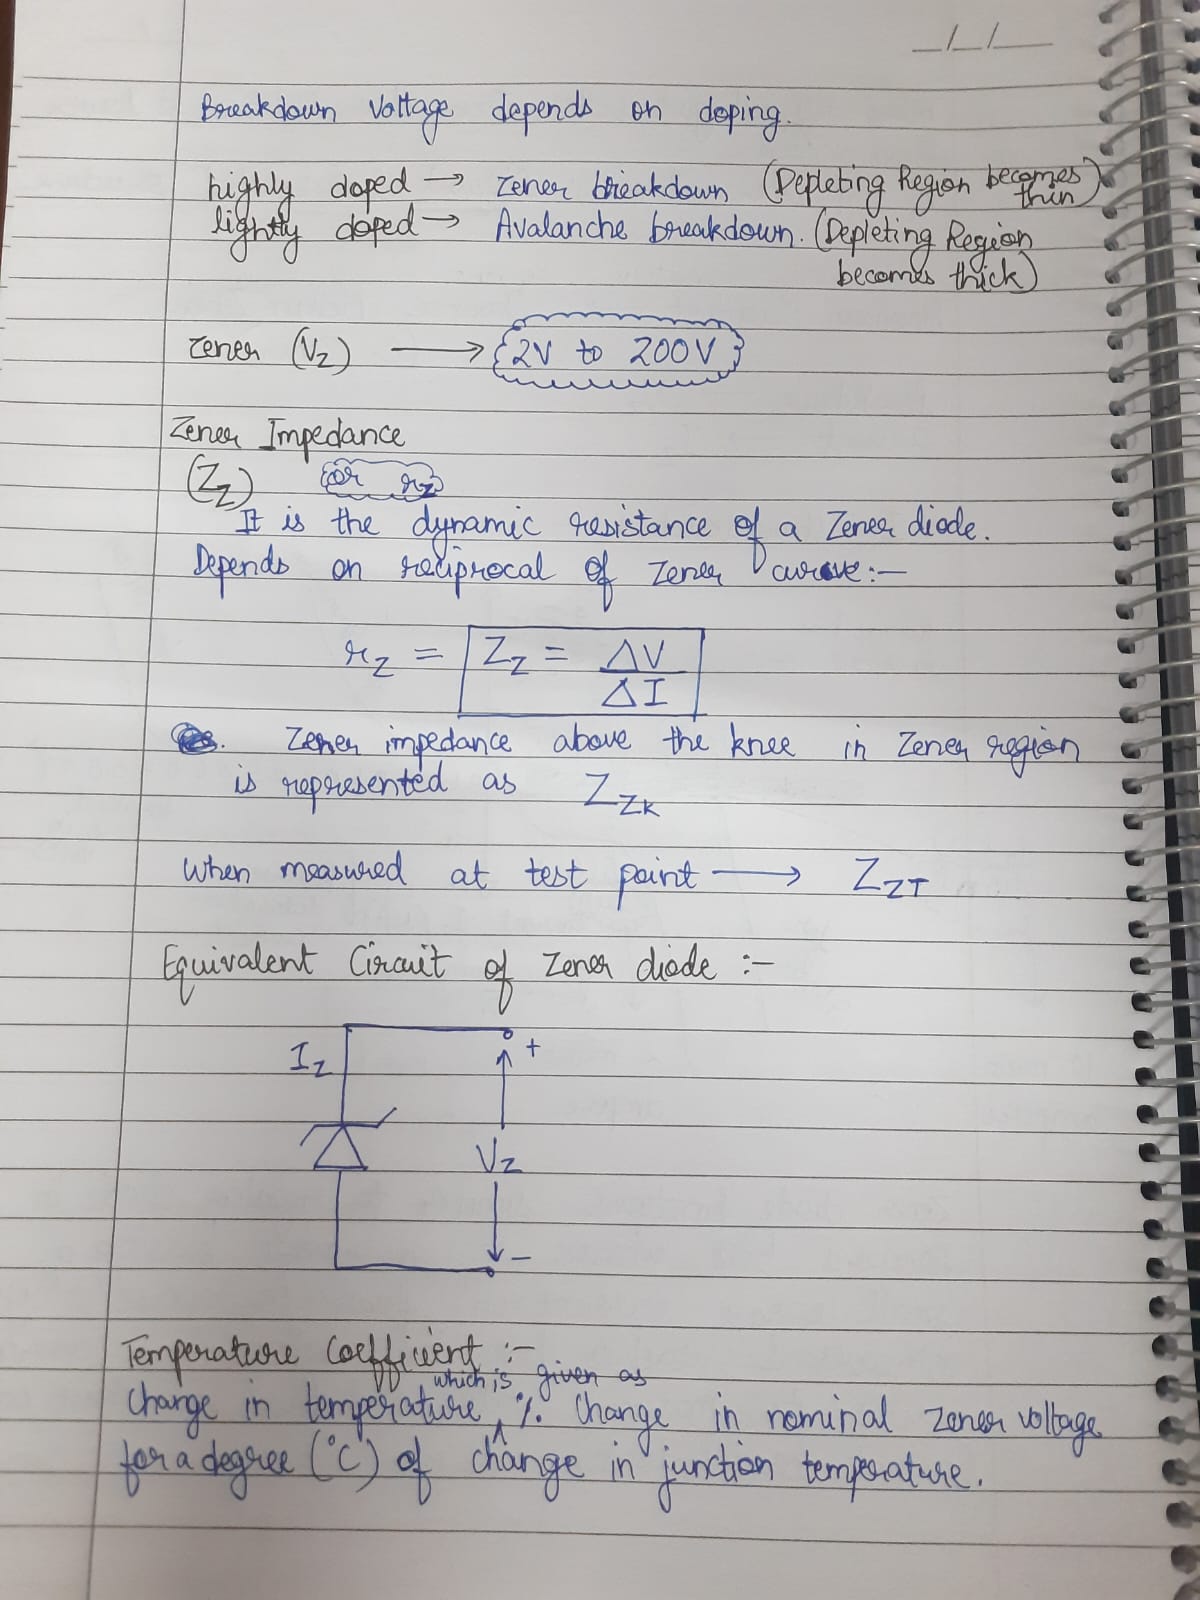 _/_/_
Breakdown Voltage depends on doping.
highly doped → Zener breakdown (Depleting Region becomes thin)
lightly doped → Avalanche breakdown. (Depleting Region
becomes thick)
Zener (Vz) → 2V to 200V
Zener Impedance
(Zz) or rz
It is the dynamic resistance of a Zener diode.
Depends on reciprocal of Zener curve:-
rz = Zz = ΔV/ΔI
Zener impedance above the knee in Zener region
is represented as ZZK
When measured at test point → ZZT
Equivalent Circuit of Zener diode :-
Iz
+
Vz
-
Temperature Coefficient :-
which is given as
Change in temperature ^ % Change in nominal zener voltage
for a degree (°C) of change in junction temperature.